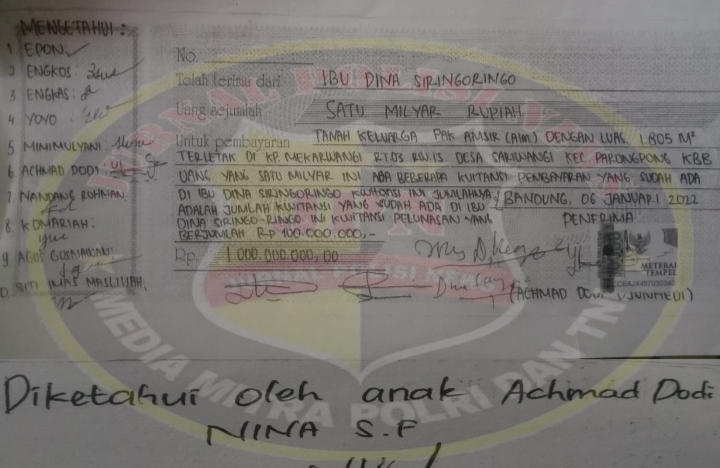 MENGETAHUI :
1 EPON
2 ENGKOS :
3 ENGKAS :
4 YOYO :
5 MINIMULYANI :
6 ACHMAD DODI
7 NANDANG ROHMAN :
8 KOMARIAH :
9 AGUS GUNAWAN :
0. SITI IMAS MASLIHAH :
No.
Telah terima dari IBU DINA SIRINGORINGO
Uang sejumlah SATU MILYAR RUPIAH
Untuk pembayaran TANAH KELUARGA PAK AMSIR (Alm) DENGAN LUAS. 1.805 M²
TERLETAK DI KP. MEKARWANGI RT.03 RW.15 DESA SARIWANGI KEC PARONGPONG KBB
UANG YANG SATU MILYAR INI ADA BEBERAPA KWITANSI PEMBAYARAN YANG SUDAH ADA
DI IBU DINA SIRINGORINGO KWITANSI INI JUMLAHNYA
ADALAH JUMLAH KWITANSI YANG SUDAH ADA DI IBU
DINA SIRINGO-RINGO INI KWITANSI PELUNASAN YANG
BERJUMLAH Rp 100.000.000,-
BANDUNG, 06 JANUARI 2022
PENERIMA
Rp. 1.000.000.000,00
METERAI
TEMPEL
(ACHMAD DODI
JURNAL POLISI NEWS
MEDIA MITRA POLRI DAN TNI
Diketahui oleh anak Achmad Dodi
NINA S.F